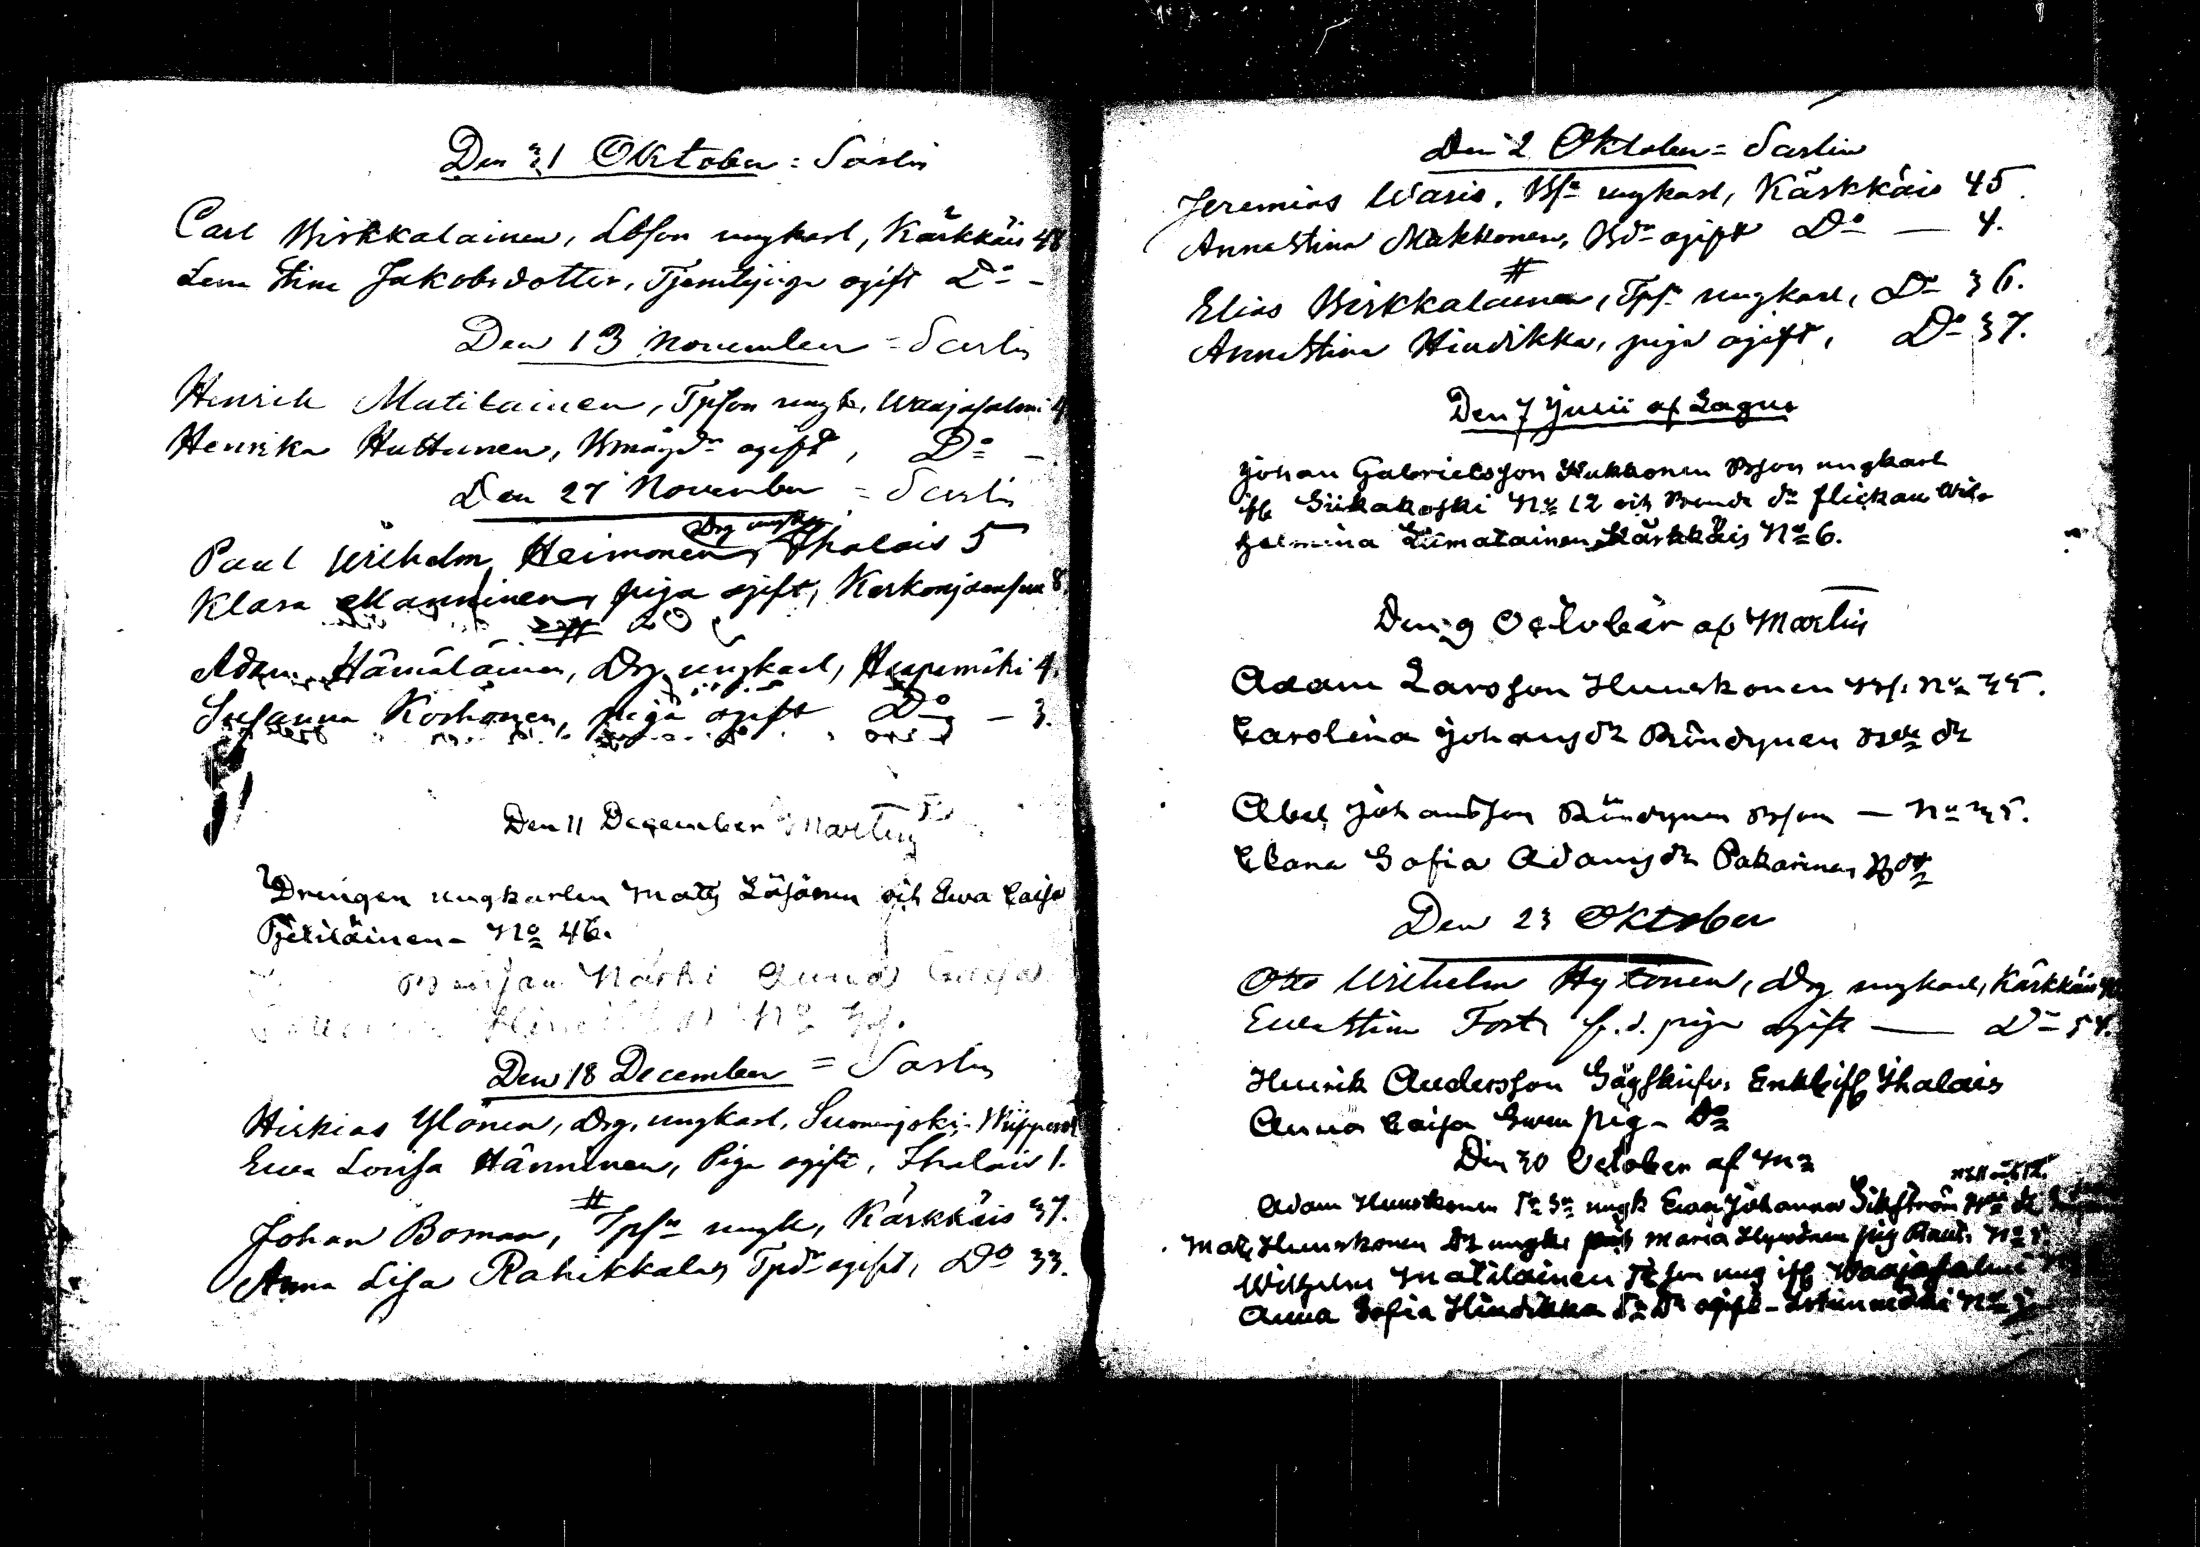 Den 31 Oktober = Sarlin
Carl Pirkkalainen, Lbson ungkarl, Kärkkäis 48
Lena Stina Jakobsdotter, Tjenstepiga ogift Do -
Den 13 November = Sarlin
Henrik Matilainen, Tpson ungk, Waajasalmi 4
Henrika Huttunen, ogift, Do -
Den 27 November = Sarlin
Drg ungkarl
Paul Wilhelm Heimonen, Ihalais 5
Klara Manninen, piga ogift, Kerkonjoensuu 8
#
Adam Hämäläinen, Drg ungkarl, Haapimäki 4.
Susanna Korhonen, piga ogift Do - 3.
Den 11 December Martin
Drengen ungkarlen Mats Läsänen och Ewa Caisa
Pjetiläinen - No 46.
Närhi Anna Caisa
No
Den 18 December = Sarlin
Hiskias Ylönen, Drg, ungkarl, Suonenjoki,
Ewa Lovisa Hänninen, Piga ogift, Ihalais 1.
#
Johan Boman, Tpsn ungk, Kärkkäis 37.
Anna Lisa Rahikkalas Tpdr ogift, Do 33.
Den 2 Oktober = Sarlin
Jeremias Waris, Bsn ungkarl, Kärkkäis 45
Anna Stina Makkonen, Bdr ogift Do — 4.
#
Elias Pirkkalainen, Tpsn ungkarl, Do 36.
Anna Stina Hindikka, piga ogift, Do 37.
Den 7 Junii af Lagus
Johan Gabrielsson Hukkonen Bson ungkarl
ifr Siikakoski No 12 och Bonde dr flickan Wil-
helmina Liimatainen Kärkkäis No 6.
Den 9 October af Martin
Adam Larsson Hunskonen Bs. No 35.
Carolina Johansdr Röndynen dr
Abel Johansson Röndynen Bson — No 35.
Clara Sofia Adamsdr Pakarinen Bdr
Den 23 Oktober
Otto Wilhelm Hytönen, Drg ungkarl, Kärkkäis
Ewa Stina Forst f.d. piga ogift — Do 54.
Henrik Andersson Enkl ifr Ihalais
Anna Caisa pig - Do
Den 30 October af Mn
Adam Hunskonen ungk Ewa Johanna Sikström
Mats Hunskonen Dr ungk. och Maria pig No
Wilhelm Matilainen ung ifr Waajasalmi
Anna Sofia Hindikka ogift - Istunmäki No